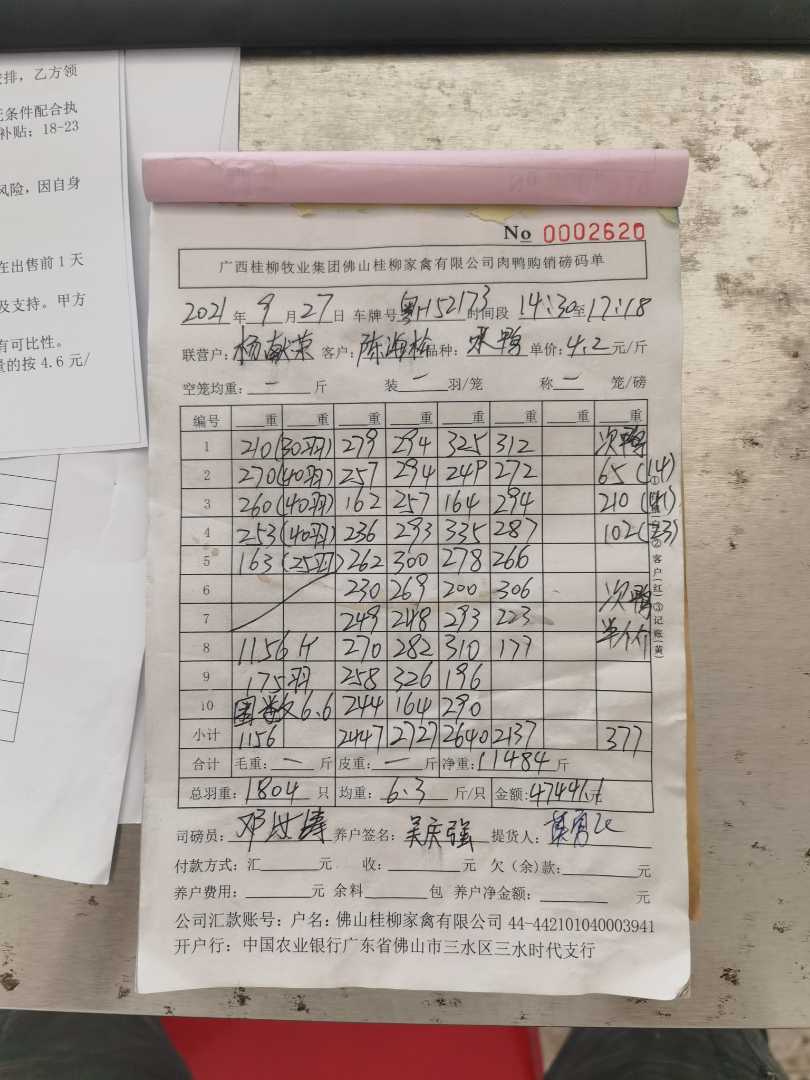 排，乙方领
条件配合执
补贴：18-23
风险，因自身
在出售前1天
及支持。甲方
有可比性。
的按 4.6 元/
No 0002620
广西桂柳牧业集团佛山桂柳家禽有限公司肉鸭购销磅码单
2021年9月27日 车牌号粤H152173时间段14:30至17:18
联营户：杨献荣 客户：陈海 品种：鸭单价：4.2元/斤
空笼均重：一斤 装一羽/笼 称一笼/磅
编号 重 重 重 重 重 重 重 重
1 210(30羽) 279 294 325 312 次鸭
2 270(40羽) 257 294 249 272 65(14)
3 260(40羽) 162 257 164 294 210(41)
4 253(40羽) 236 293 335 287 102(23)
5 163(25羽) 262 300 278 266
6 230 269 200 306 次鸭
7 249 248 293 223
8 1156斤 270 282 310 177
9 175羽 258 326 196
10 6.6 244 164 290
小计 1156 2447 2727 2640 2137 377
合计 毛重：一斤 皮重：一斤 净重：11484斤
总羽重：1804只 均重：6.3斤/只 金额：47441.1元
司磅员：邓 涛 养户签名：吴庆强 提货人：
付款方式：汇 元 收： 元 欠（余）款： 元
养户费用： 元 余料 包 养户净金额： 元
公司汇款账号：户名：佛山桂柳家禽有限公司 44-442101040003941
开户行：中国农业银行广东省佛山市三水区三水时代支行
②客户(红)③记账(黄)